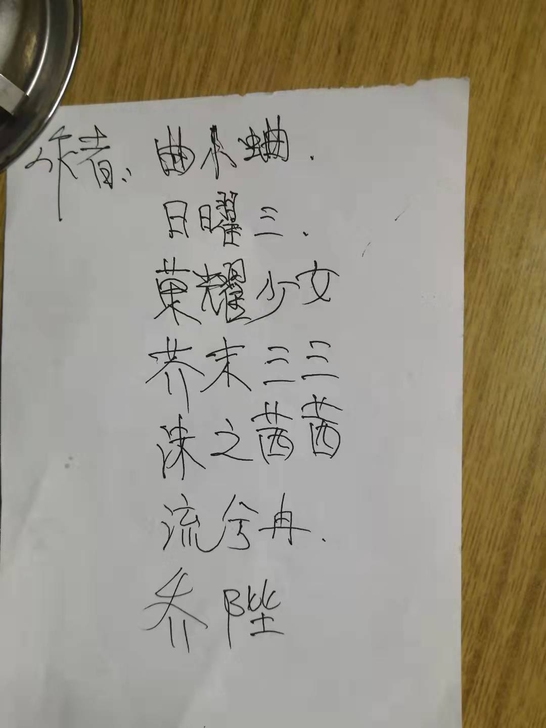 作者: 曲小蛐.
日曜三.
菓耀少女
芥末三三
涑之茜茜
流兮冉.
乔陛